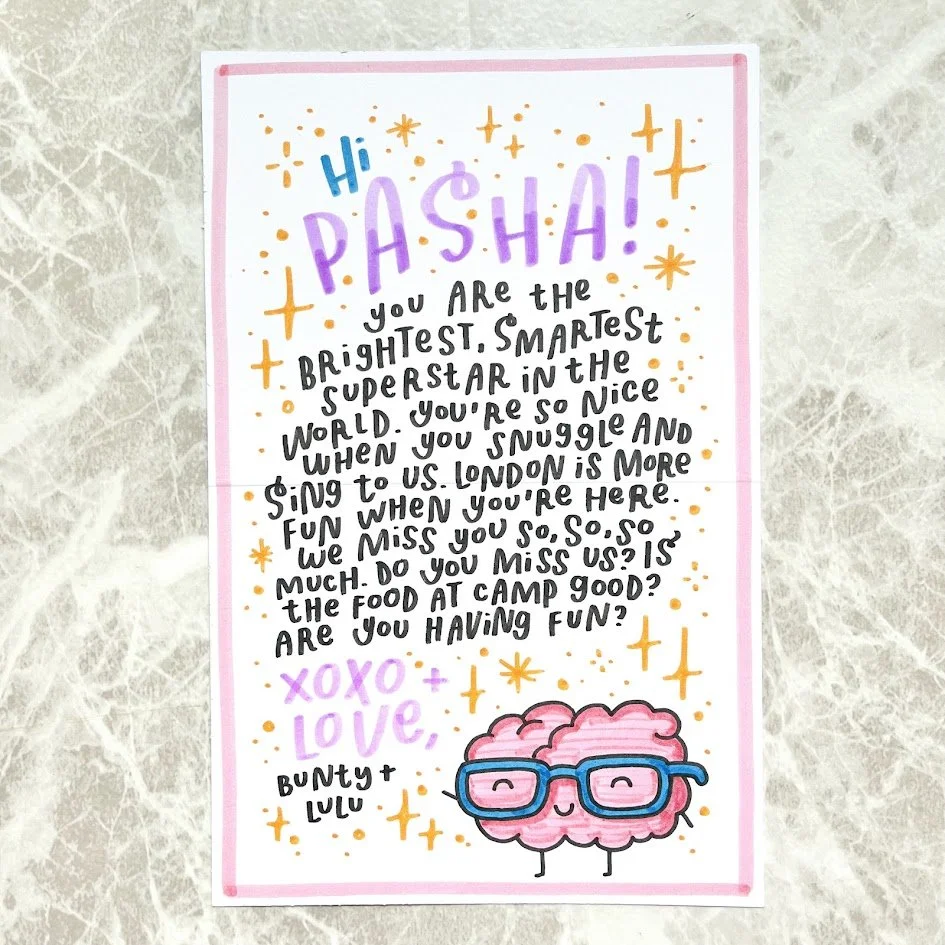 Hi
PASHA!
YOU ARE THE
BRIGHTEST, SMARTEST
SUPERSTAR IN THE
WORLD. YOU'RE SO NICE
WHEN YOU SNUGGLE AND
SING TO US. LONDON IS MORE
FUN WHEN YOU'RE HERE.
WE MISS YOU SO, SO, SO
MUCH. DO YOU MISS US? IS
THE FOOD AT CAMP GOOD?
ARE YOU HAVING FUN?
XOXO +
LOVE,
BUNTY +
LULU